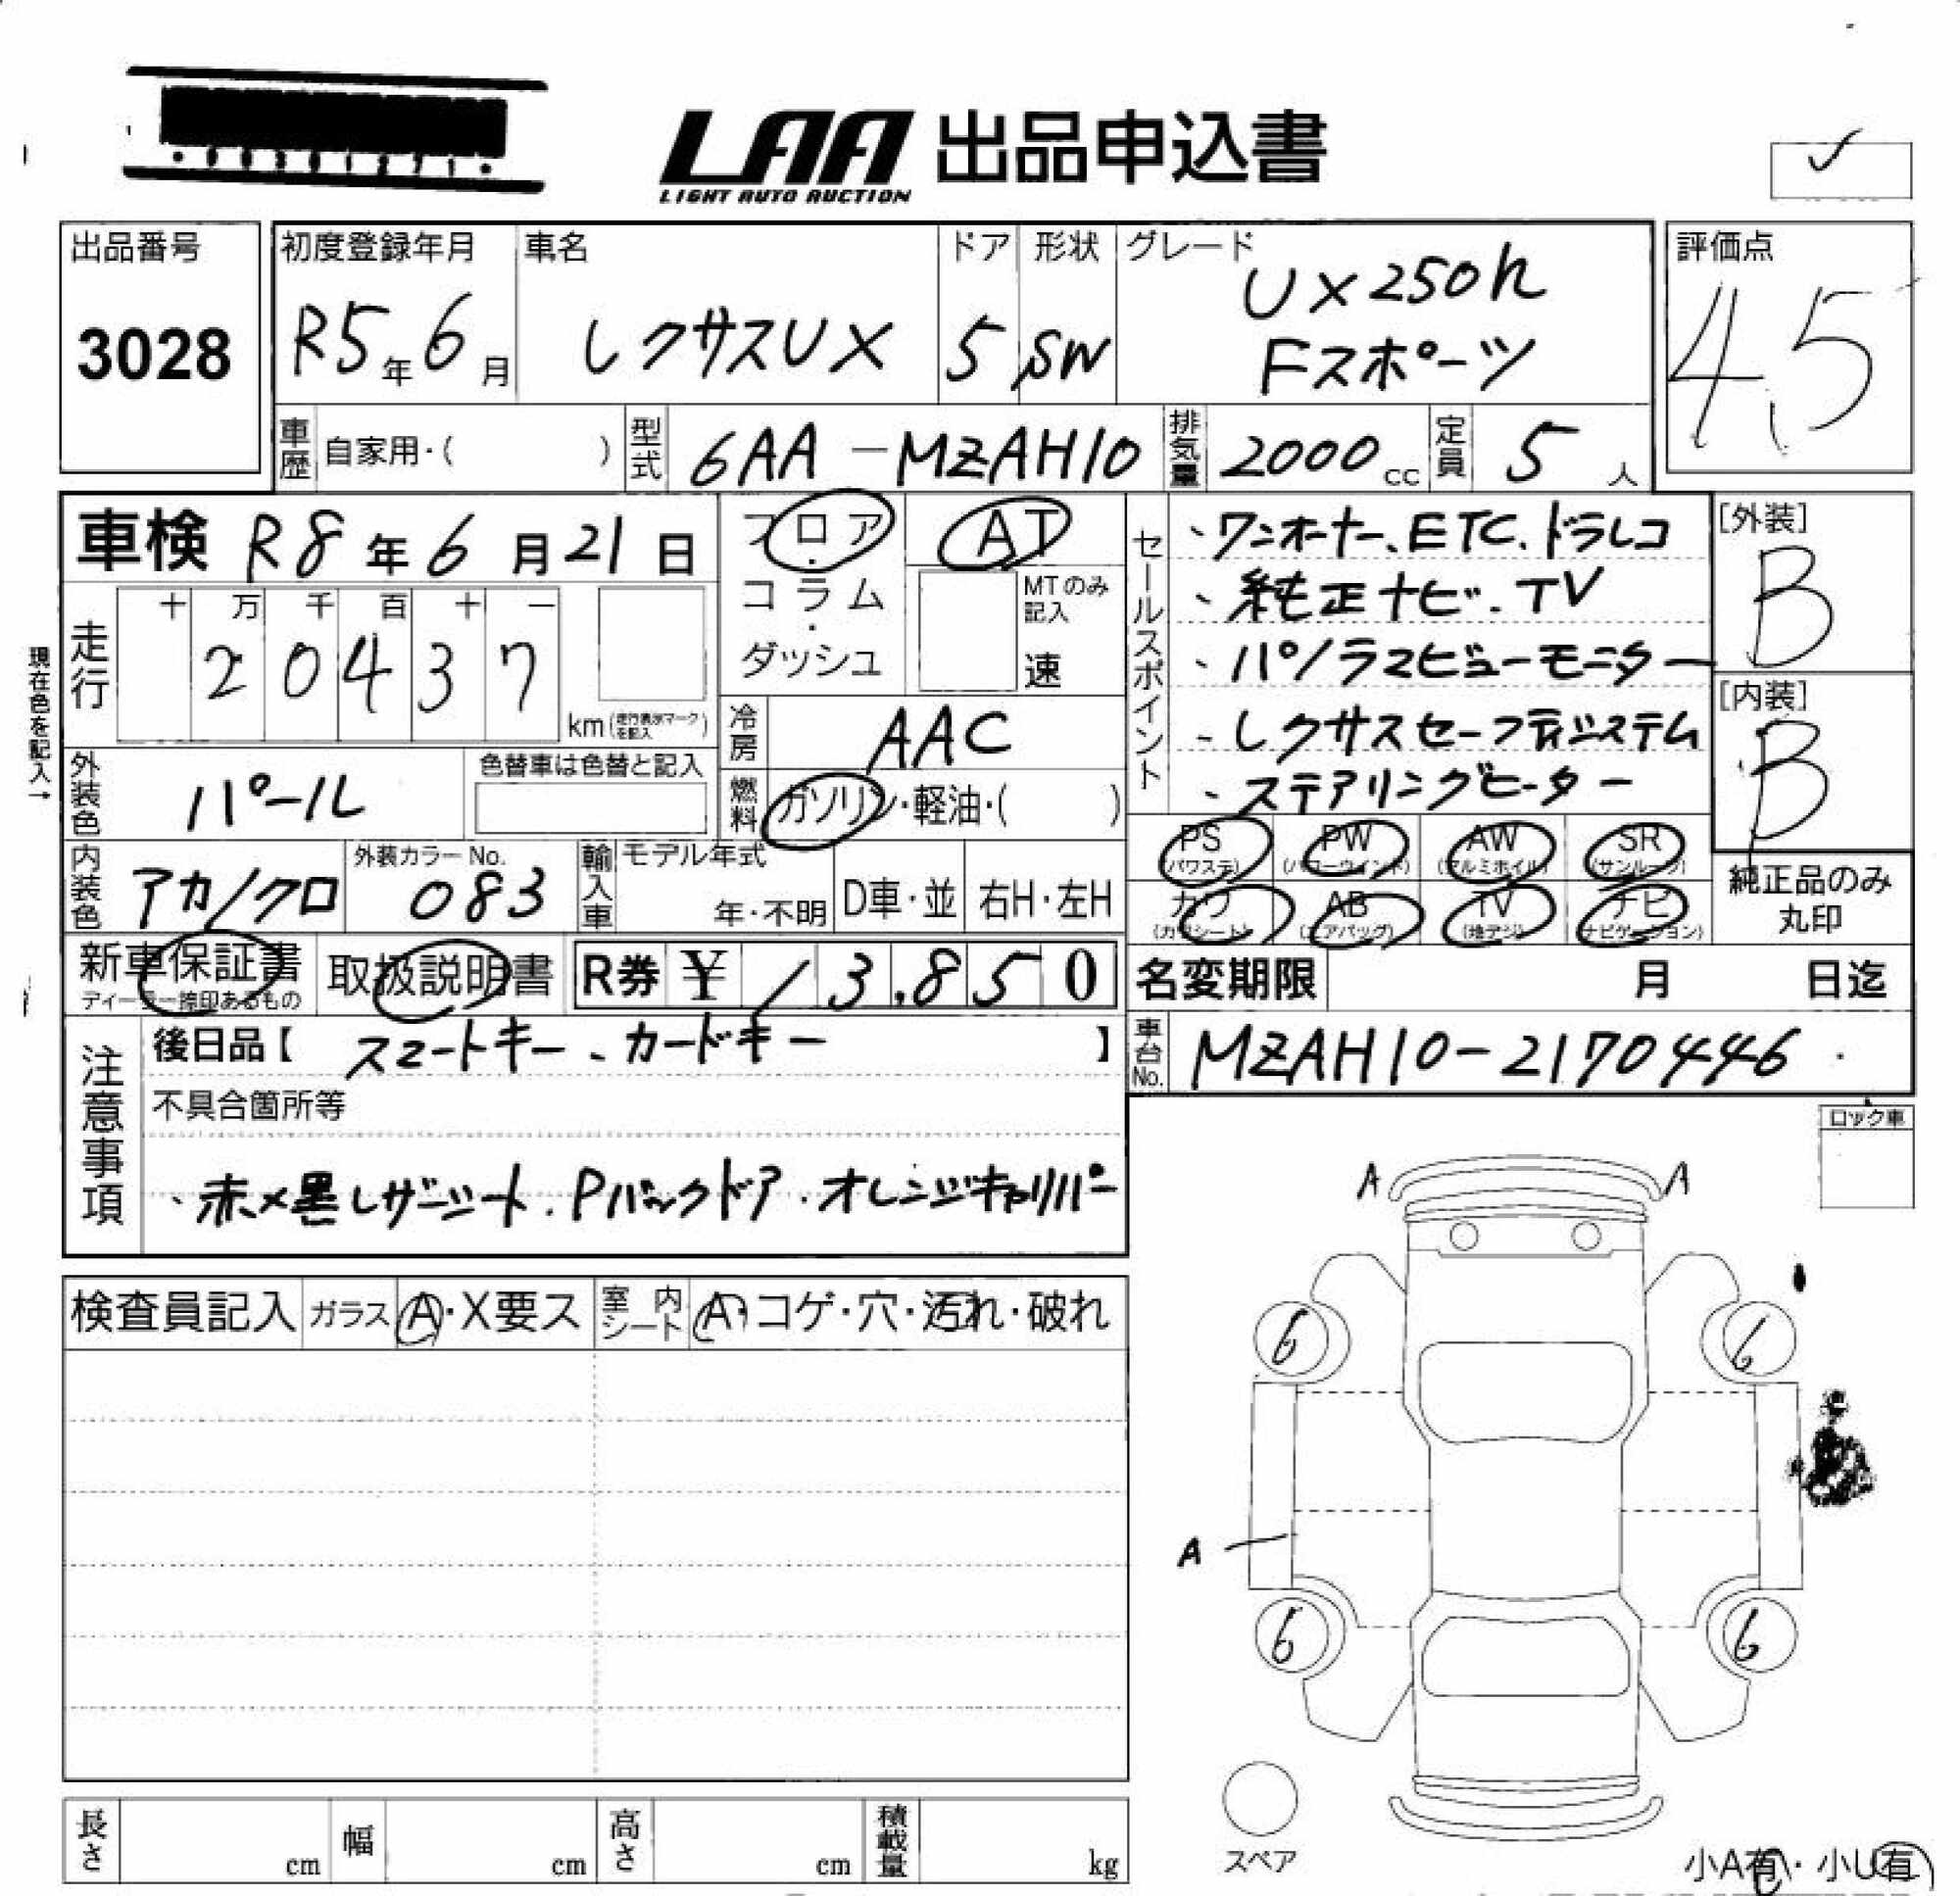 LAA 出品申込書
LIGHT AUTO AUCTION
出品番号
3028
初度登録年月
R5年6月
車名
レクサスUX
ドア
5
形状
SW
グレード
UX250h
Fスポーツ
評価点
4.5
車歴 自家用・( )
型式 6AA-MZAH10
排気量 2000cc
定員 5人
車検 R8年6月21日
フロア・コラム・ダッシュ
AT
MTのみ記入
速
現在色を記入→
走行
十 万 千 百 十 一
2 0 4 3 7
km(走行表示マークを記入)
冷房 AAC
燃料 ガソリン・軽油・( )
外装色 パール
色替車は色替と記入
内装色 アカ/クロ
外装カラーNo.
083
輸入車 モデル年式
年・不明
D車・並
右H・左H
セールスポイント
・ワンオーナー、ETC、ドラレコ
・純正ナビ、TV
・パノラマビューモニター
・レクサスセーフティシステム
・ステアリングヒーター
[外装]
B
[内装]
B
PS (パワステ)
PW (パワーウインド)
AW (アルミホイル)
SR (サンルーフ)
カワ (カワシート)
AB (エアバッグ)
TV (地デジ)
ナビ (ナビゲーション)
純正品のみ
丸印
新車保証書
ディーラー捺印あるもの
取扱説明書
R券 ¥ 13,850
名変期限 月 日迄
注意事項
後日品【 スマートキー、カードキー 】
車台No. MZAH10-2170446
不具合箇所等
・赤×黒レザーシート、Pバックドア、オレンジキャリパー
ロック車
検査員記入
ガラス A・X要ス
室内シート A・コゲ・穴・汚れ・破れ
A A
6 6
A
6 6
スペア
長さ cm
幅 cm
高さ cm
積載量 kg
小A有・小U有